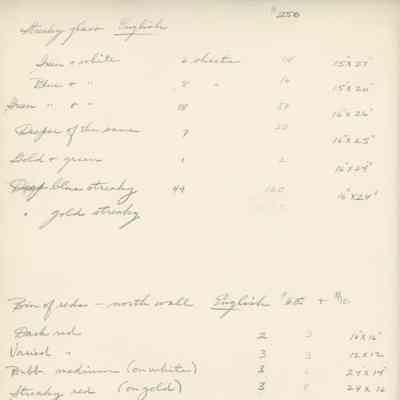 $250
Streaky glass English
Green & white 6 sheets 18 15"x27"
Blue & " 8 " 16 15"x20"
Green " & " 18 50 16"x26"
Deeper of the same 7 20 16"x25"
Gold & green 1 2 16"x24"
Deep blue streaky 44 120 16"x24"
" gold streaky
Bin of reds - north wall English $6.00 +
Dark red 2 3 16"x16"
Varied " 3 3 12x12
medium (on white) 3 24x14
Streaky red (on gold) 3 24x16